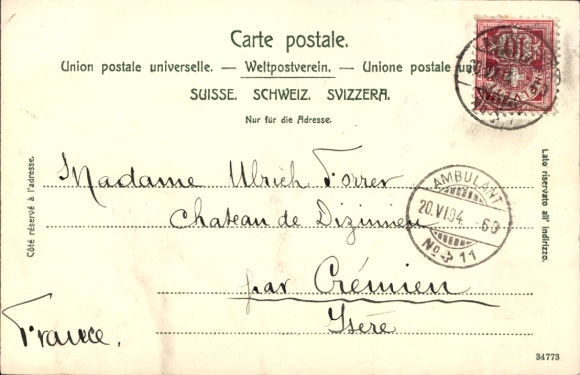 Carte postale.
Union postale universelle. — Weltpostverein. — Unione postale
SUISSE. SCHWEIZ. SVIZZERA.
Nur für die Adresse.
Côté réservé à l'adresse.
Lato riservato all' indirizzo.
Madame Ulrich Forrer
Chateau de Dizimieu
par Crémieu
Isère
France.
AMBULANT
20.VI.04.-60
No 11
34773